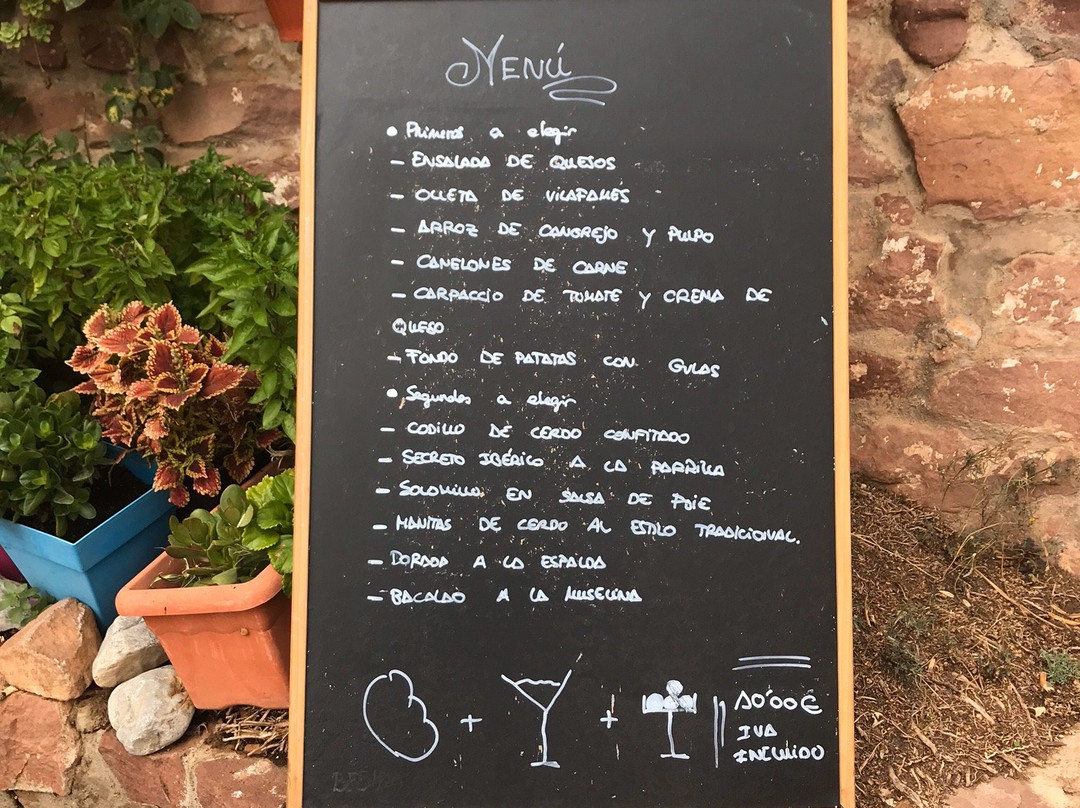 MENÚ
• Primeros a elegir
- ENSALADA DE QUESOS
- OLLETA DE VILAFAMES
- ARROZ DE CANGREJO Y PULPO
- CANELONES DE CARNE
- CARPACCIO DE TOMATE Y CREMA DE
QUESO
- FONDO DE PATATAS CON GULAS
• Segundos a elegir
- CODILLO DE CERDO CONFITADO
- SECRETO IBÉRICO A LA PARRILLA
- SOLOMILLO EN SALSA DE FOIE
- MANITAS DE CERDO AL ESTILO TRADICIONAL.
- DORADA A LA ESPALDA
- BACALAO A LA MUSELINA
+ + 10'00€
IVA
INCLUIDO